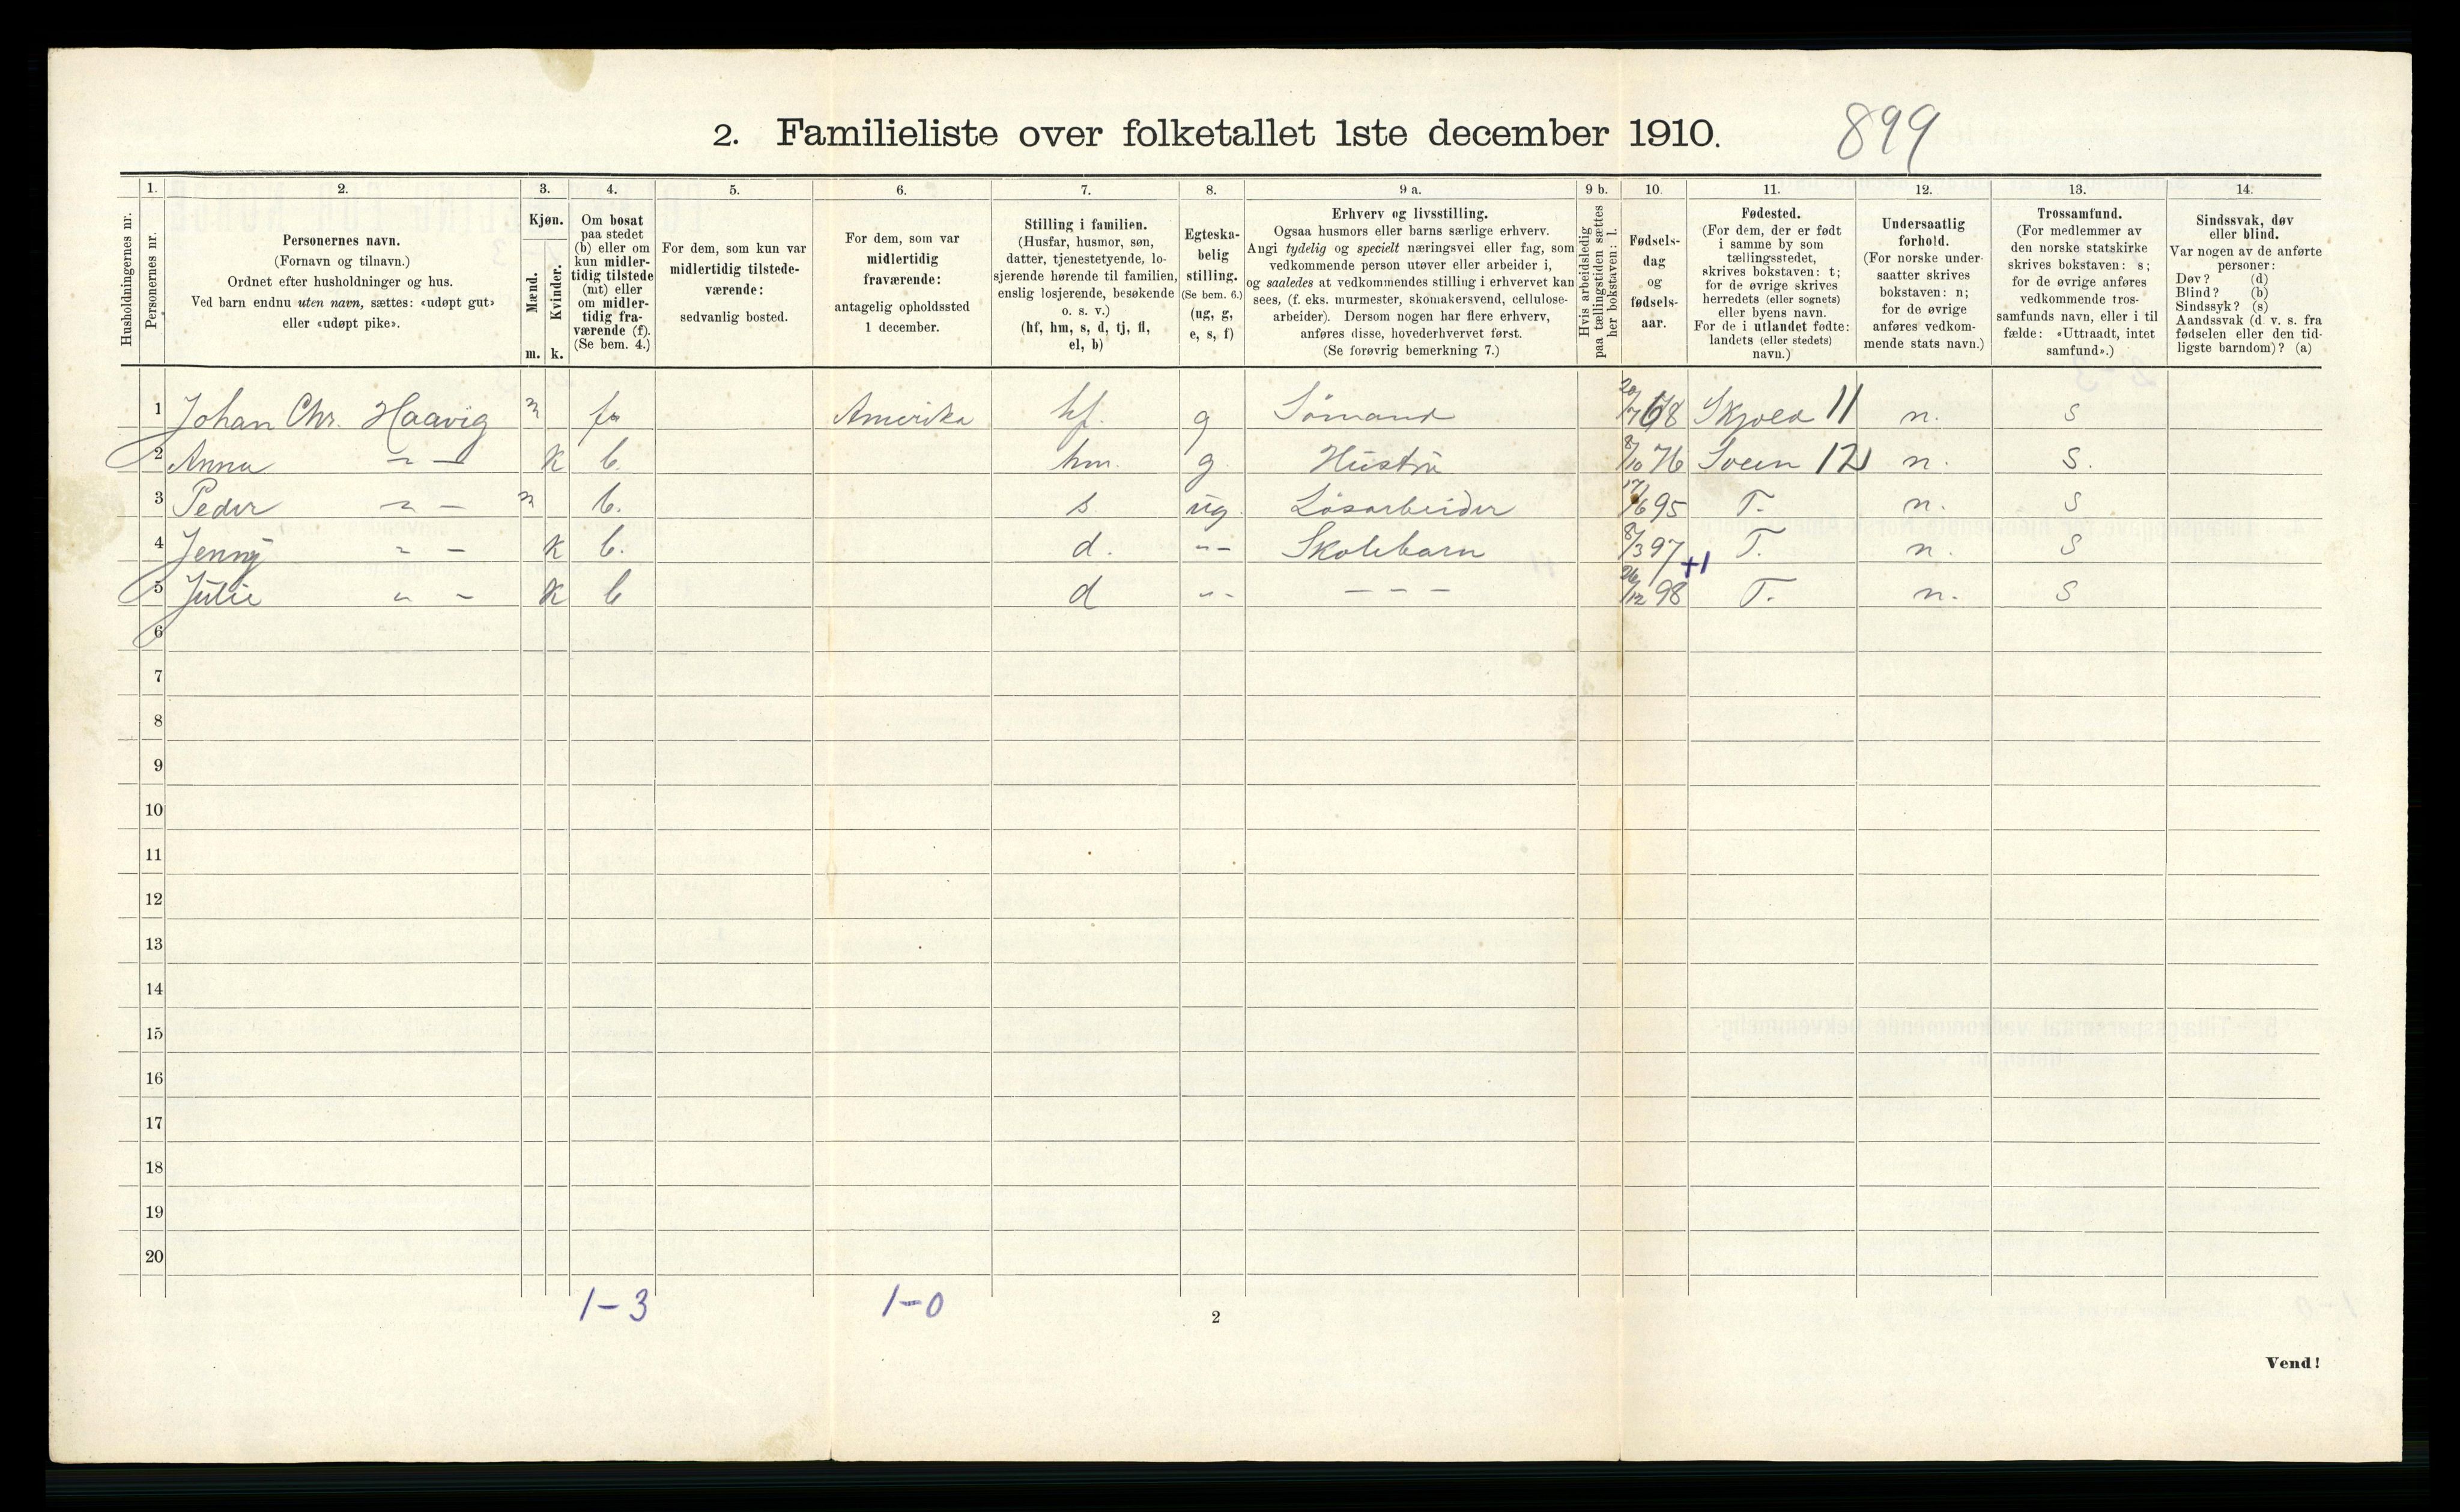 2. Familieliste over folketallet 1ste december 1910. 899
1. 2. 3. 4. 5. 6. 7. 8. 9 a. 9 b. 10. 11. 12. 13. 14.
Husholdningernes nr.
Personernes nr.
Personernes navn.
(Fornavn og tilnavn.)
Ordnet efter husholdninger og hus.
Ved barn endnu uten navn, sættes: «udøpt gut»
eller «udøpt pike».
Kjøn.
Mænd.
Kvinder.
m. k.
Om bosat
paa stedet
(b) eller om
kun midler-
tidig tilstede
(mt) eller
om midler-
tidig fra-
værende (f).
(Se bem. 4.)
For dem, som kun var
midlertidig tilstede-
værende:
sedvanlig bosted.
For dem, som var
midlertidig
fraværende:
antagelig opholdssted
1 december.
Stilling i familien.
(Husfar, husmor, søn,
datter, tjenestetyende, lo-
sjerende hørende til familien,
enslig losjerende, besøkende
o. s. v.)
(hf, hm, s, d, tj, fl,
el, b)
Egteska-
belig
stilling.
(Se bem. 6.)
(ug, g,
e, s, f)
Erhverv og livsstilling.
Ogsaa husmors eller barns særlige erhverv.
Angi tydelig og specielt næringsvei eller fag, som
vedkommende person utøver eller arbeider i,
og saaledes at vedkommendes stilling i erhvervet kan
sees, (f. eks. murmester, skomakersvend, cellulose-
arbeider). Dersom nogen har flere erhverv,
anføres disse, hovederhvervet først.
(Se forøvrig bemerkning 7.)
Hvis arbeidsledig
paa tællingstiden sættes
her bokstaven: l.
Fødsels-
dag
og
fødsels-
aar.
Fødested.
(For dem, der er født
i samme by som
tællingsstedet,
skrives bokstaven: t;
for de øvrige skrives
herredets (eller sognets)
eller byens navn.
For de i utlandet fødte:
landets (eller stedets)
navn.)
Undersaatlig
forhold.
(For norske under-
saatter skrives
bokstaven: n;
for de øvrige
anføres vedkom-
mende stats navn.)
Trossamfund.
(For medlemmer av
den norske statskirke
skrives bokstaven: s;
for de øvrige anføres
vedkommende tros-
samfunds navn, eller i til
fælde: «Uttraadt, intet
samfund».)
Sindssvak, døv
eller blind.
Var nogen av de anførte
personer:
Døv? (d)
Blind? (b)
Sindssyk? (s)
Aandssvak (d. v. s. fra
fødselen eller den tid-
ligste barndom)? (a)
1 Johan Chr. Haavig m Amerika hf. g Sömand 68 Skjold 11 n. s
2 Anna " — k b. hm. g Hustru 8/10 76 12 n. s.
3 Peder " — m b. s. ug. Lösarbeider 17/6 95 T. n. s
4 Jenny " — k b. d. "- Skolebarn 8/3 97 +1 T. n. s
5 Julie " — k b d "- - - - 26/12 98 T. n. s
6
7
8
9
10
11
12
13
14
15
16
17
18
19
20
1-3 1-0
2
Vend!